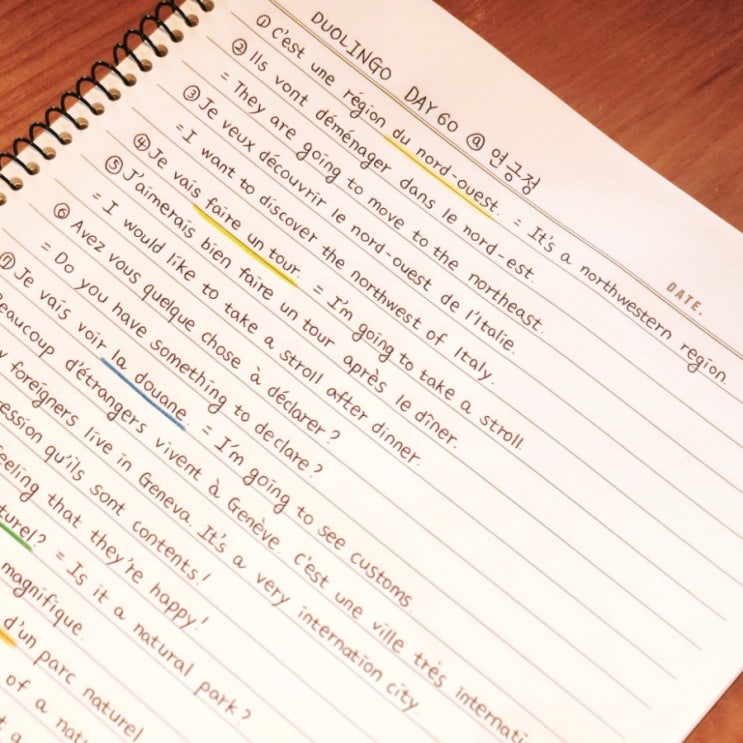 DUOLINGO DAY 60 @ 연긍정
DATE.
① C'est une région du nord-ouest. = It's a northwestern region.
② Ils vont déménager dans le nord-est.
= They are going to move to the northeast.
③ Je veux découvrir le nord-ouest de l'Italie.
= I want to discover the northwest of Italy.
④ Je vais faire un tour. = I'm going to take a stroll.
⑤ J'aimerais bien faire un tour après le dîner.
= I would like to take a stroll after dinner.
⑥ Avez vous quelque chose à déclarer?
= Do you have something to declare?
⑦ Je vais voir la douane. = I'm going to see customs.
Beaucoup d'étrangers vivent à Genève. c'est une ville trés internati
y foreigners live in Geneva. It's a very internation city.
ession qu'ils sont contents!
eeling that they're happy!
turel? = Is it a natural park?
magnifique.
d'un parc naturel
of a natu